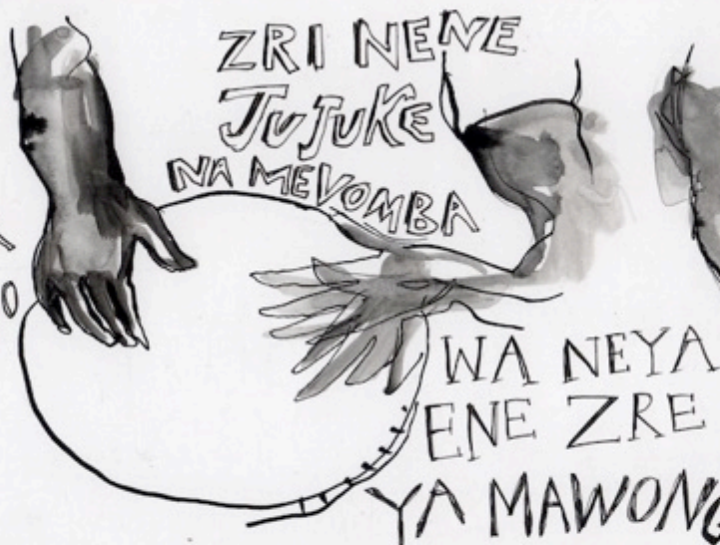 ZRI NENE
JUJUKE
NA MEVOMBA
WA NEYA
ENE ZRE
YA MAWONG